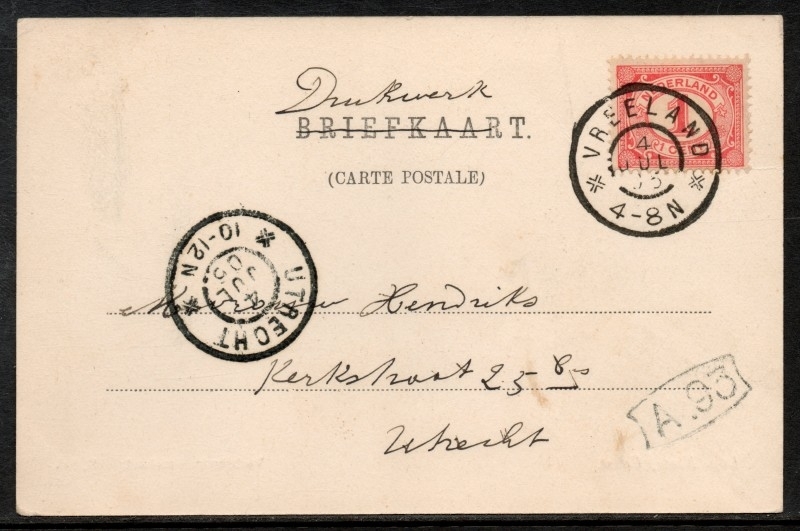 Drukwerk
BRIEFKAART.
(CARTE POSTALE)
NEDERLAND
1
1 CENT
VREELAND
4
JUL
05
4-8N
UTRECHT
4
JUL
05
10-12N
Mevrouw Hendriks
Kerkstraat 25
Utrecht
A.93